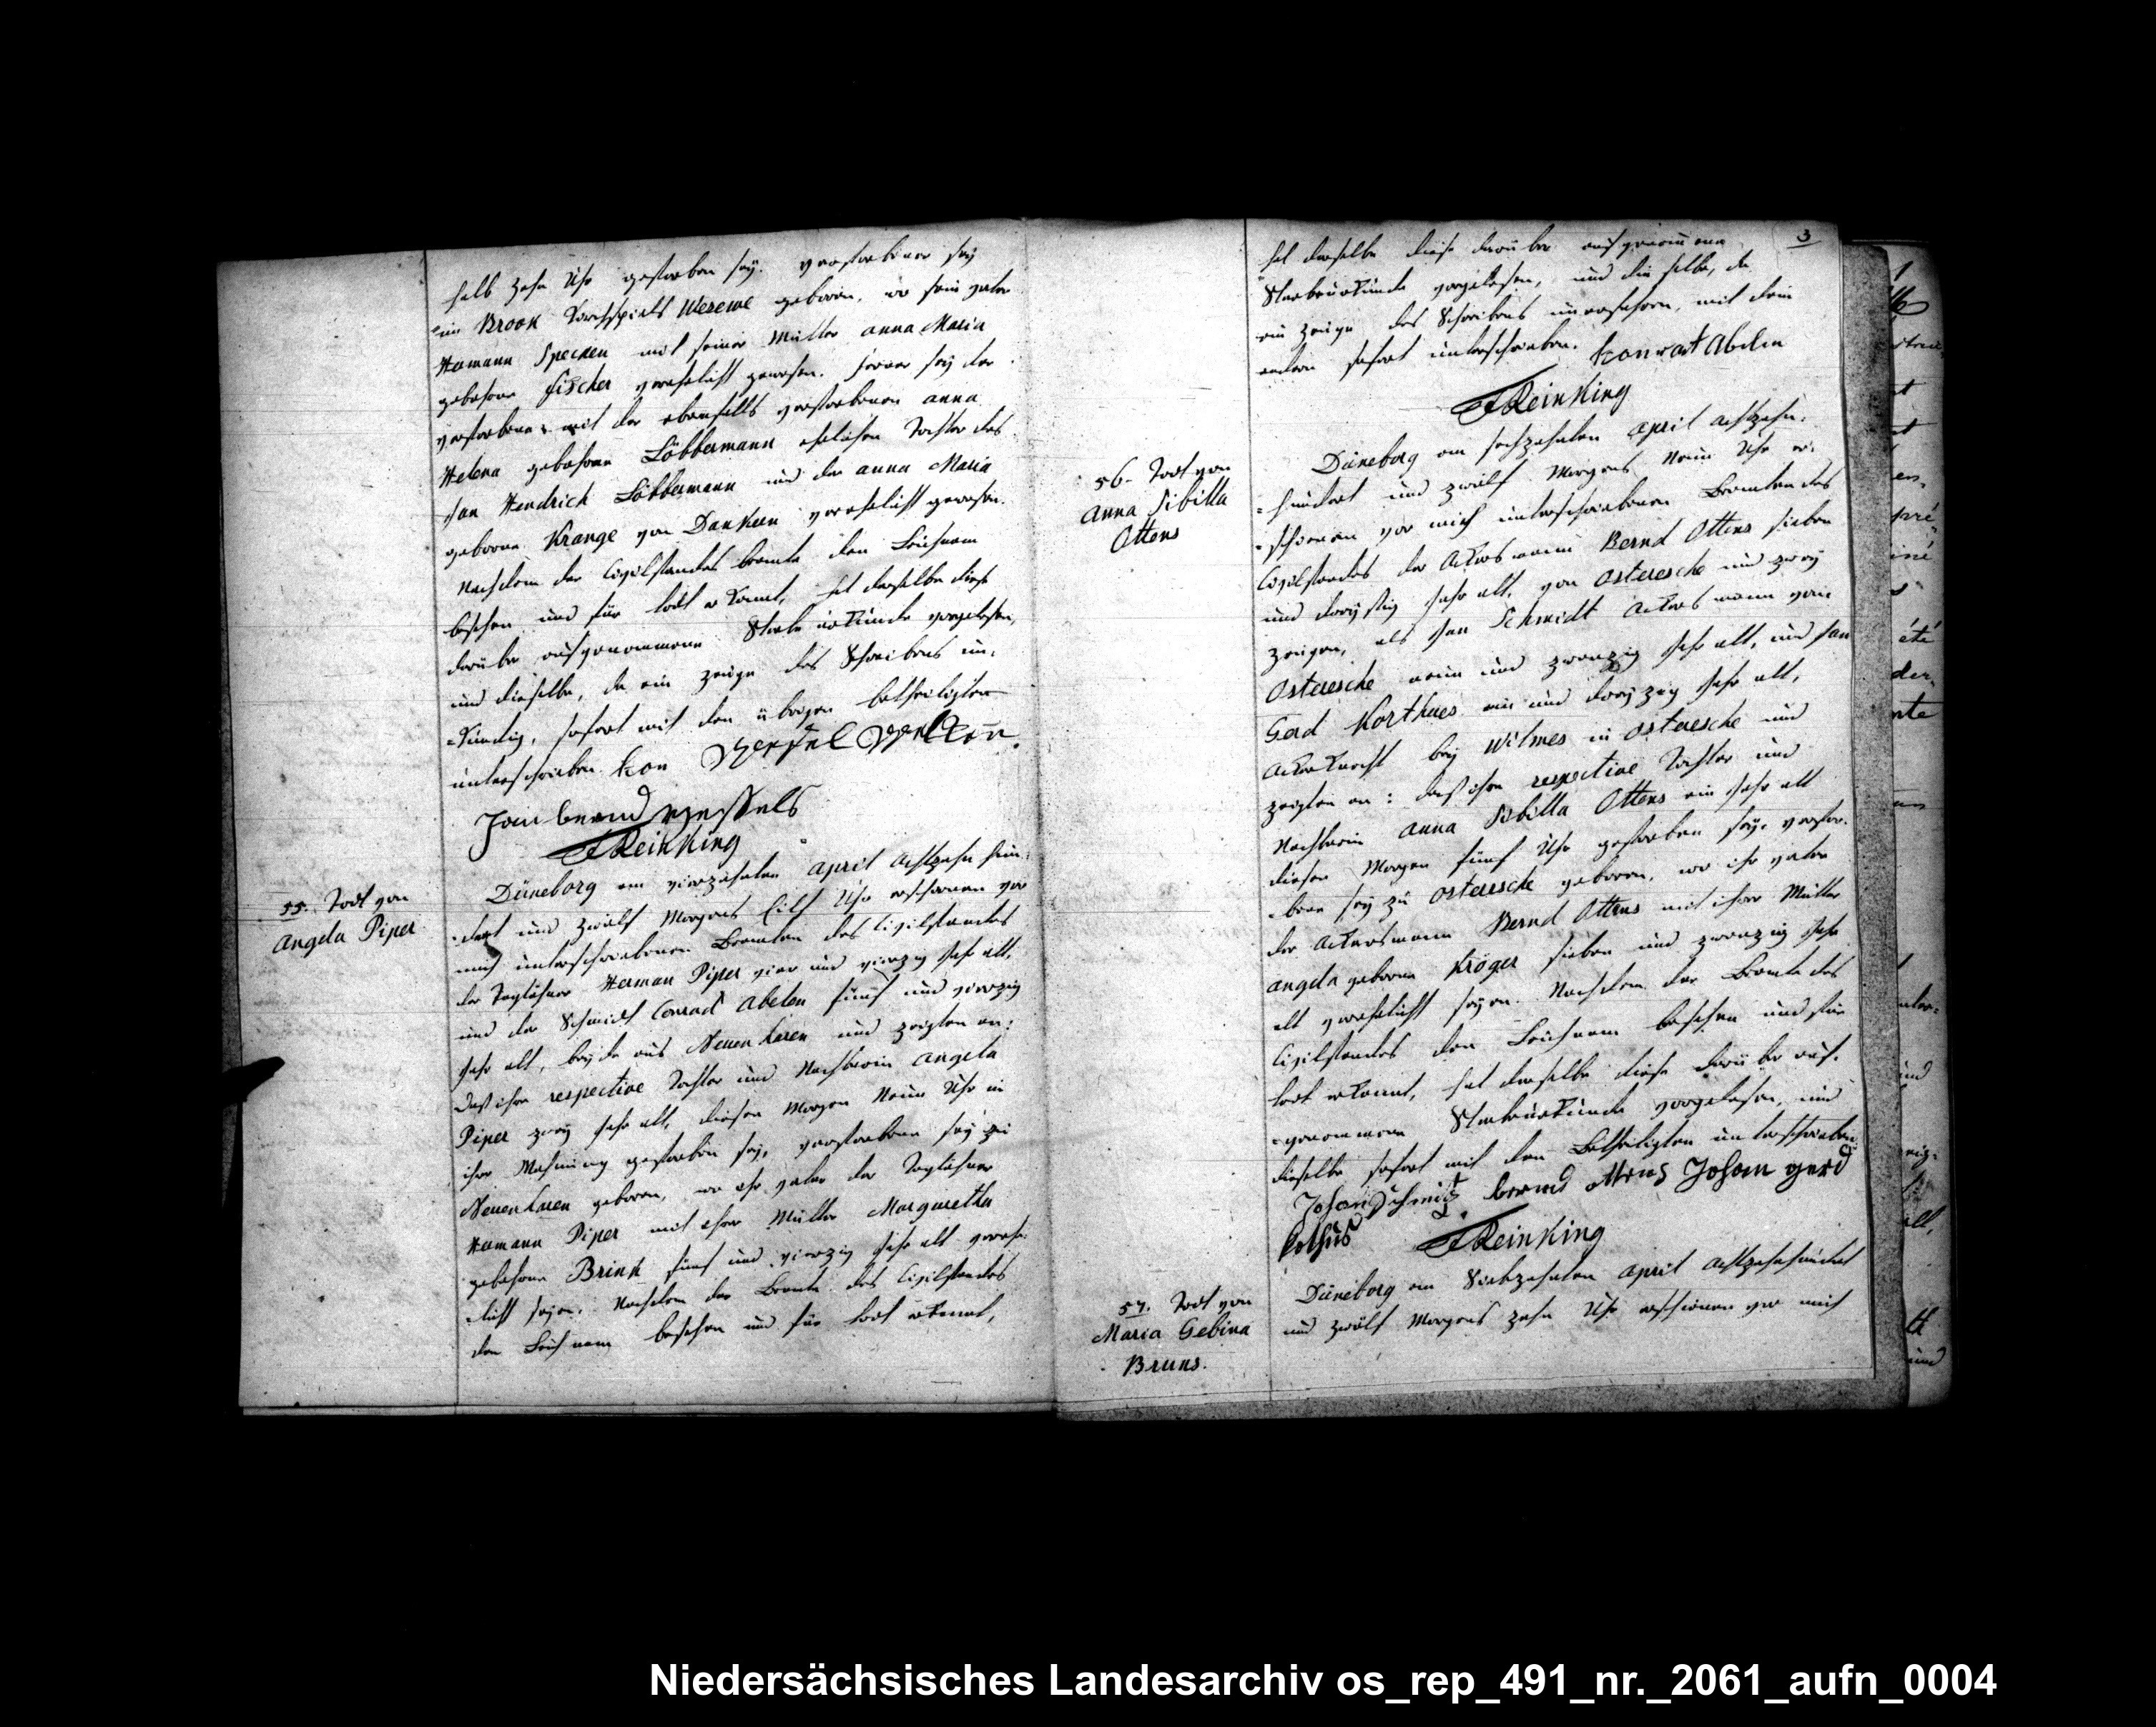 halb zehn Uhr gestorben sey. Verstorbener sey
im Brook Kirchspiels Wesewe geboren, wo sein Vater
Hermann Specken mit seiner Mutter Anna Maria
gebohrne Fischer verehelicht gewesen. Ferner sey der
verstorbene mit der ebenfalls verstorbenen Anna
Helena gebohrne Löbbermann ehelichen Tochter des
Jan Hendrich Löbbermann und der Anna Maria
geborne Krange von Dankern verehelicht gewesen.
Nachdem der Civilstandes beamte den Leichnam
besehen und für todt erkannt, hat derselbe diese
darüber aufgenommene Sterbeurkunde vorgelesen,
und dieselbe, da ein Zeuge des Schreibens un-
kundig, sofort mit den übrigen betheiligten
unterschrieben.
Jan bernd Wessels
Reinking
55. Todt von
Angela Piper
Düneborg am vierzehnten April Achtzehn hun-
dert und zwölf Morgens Eilf Uhr erschienen vor
mich unterschriebenen Beamten des Civilstandes
der Taglöhner Herman Piper vier und vierzig Jahr alt,
und der Schmidt Conrad Abelen fünf und vierzig
Jahr alt, beyde aus Neuenharen und zeigten an:
daß ihre respective Tochter und Nachbarin Angela
Piper zwey Jahr alt, diesen Morgen Neun Uhr in
ihrer Wohnung gestorben sey, verstorbene sey zu
Neuenharen geboren, wo ihr Vater der Taglöhner
Hermann Piper mit ihrer Mutter Margaretha
gebohrne Brink fünf und vierzig Jahr alt vereh-
licht seyen. Nachdem der Beamte des Civilstandes
den Leichnam besehen und für todt erkannt,
3
hat derselbe diese darüber aufgenommene
Sterbeurkunde vorgelesen, und dieselbe, da
ein Zeuge des Schreibens unerfahren, mit dem
andern sofort unterschrieben. Konrart Abelen
Reinking
56. Todt von
Anna Sibilla
Ottens
Düneborg am sechzehnten April Achtzehn-
hundert und zwölf Morgens Neun Uhr er-
schienen vor mich unterschriebenen Beamten des
Civilstandes der Ackersmann Bernd Ottens sieben
und dreyßig Jahr alt, von Osteresche und zwey
Zeugen, als Jan Schmidt Ackersmann vom
Osteresche neun und zwanzig Jahr alt, und Jan
Gerd Korthues ein und dreyzig Jahr alt,
Ackerknecht bey Wilmes in Osteresche und
zeigten an: daß ihre respective Tochter und
Nachbarin Anna Sibilla Ottens ein Jahr alt
diesen Morgen fünf Uhr gestorben sey. verstor-
bene sey zu Osteresche geboren, wo ihr Vater
der Ackersmann Bernd Ottens mit ihrer Mutter
Angela geborne Kröger sieben und zwanzig Jahr
alt verehelicht seyen. Nachdem der Beamte des
Civilstandes den Leichnam besehen und für
todt erkannt, hat derselbe diese darüber auf-
genommene Sterbeurkunde vorgelesen, und
dieselbe sofort mit den Betheiligten unterschrieben.
Johan Schmidt bernd ottens Johan gerd
Reinking
57. Todt von
Maria Gebina
Bruns.
Düneborg am Siebzehnten April Achtzehnhundert
und zwölf Morgens zehn Uhr erschienen vor mich
Niedersächsisches Landesarchiv os_rep_491_nr._2061_aufn_0004